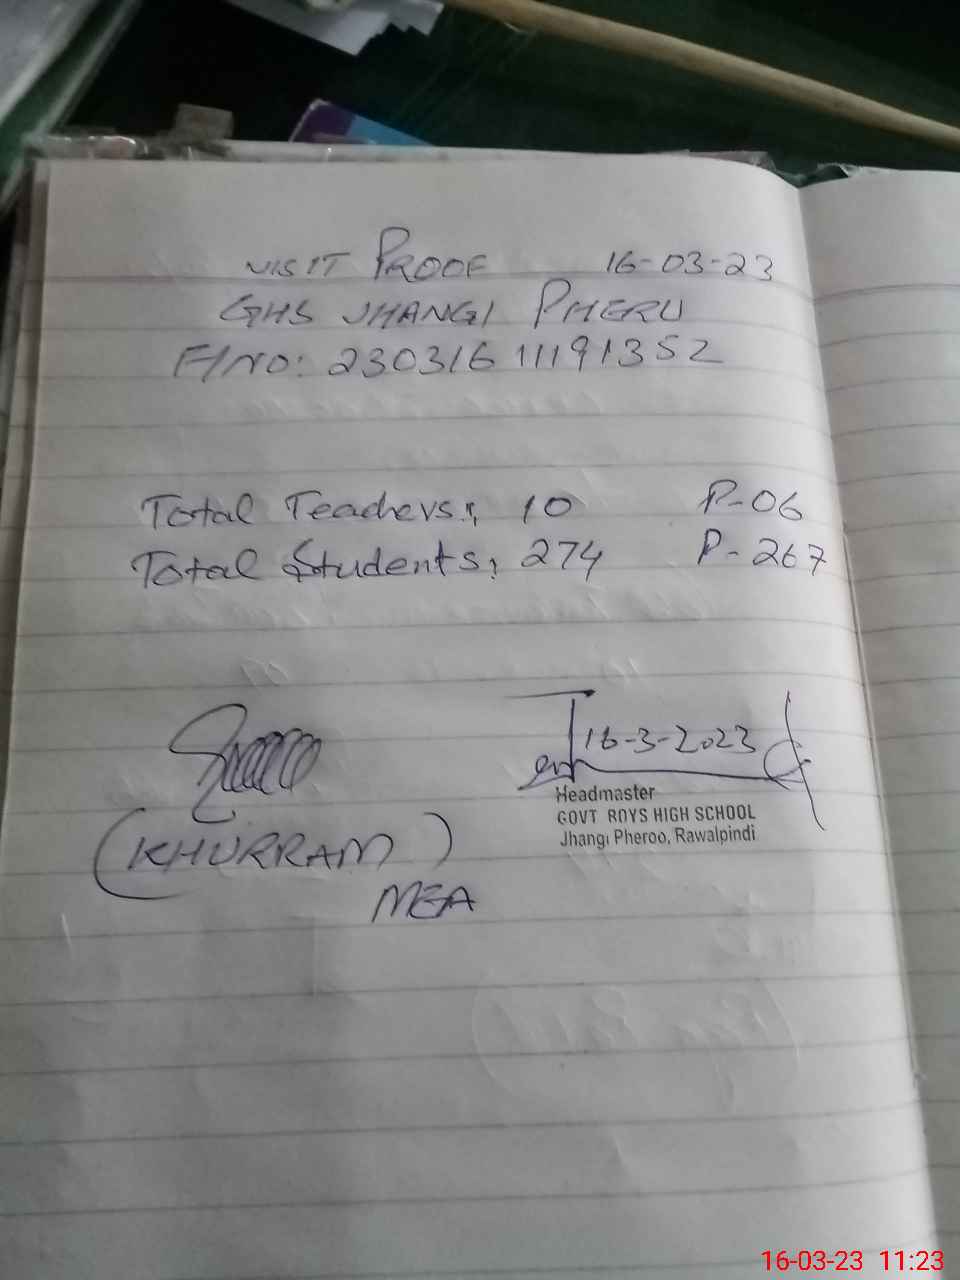 VISIT PROOF 16-03-23
GHS JHANGI PHERU
F/NO: 23031611191352
Total Teachers: 10 P-06
Total Students: 274 P-267
16-3-2023
Headmaster
GOVT BOYS HIGH SCHOOL
Jhangi Pheroo, Rawalpindi
(KHURRAM)
MEA
16-03-23 11:23